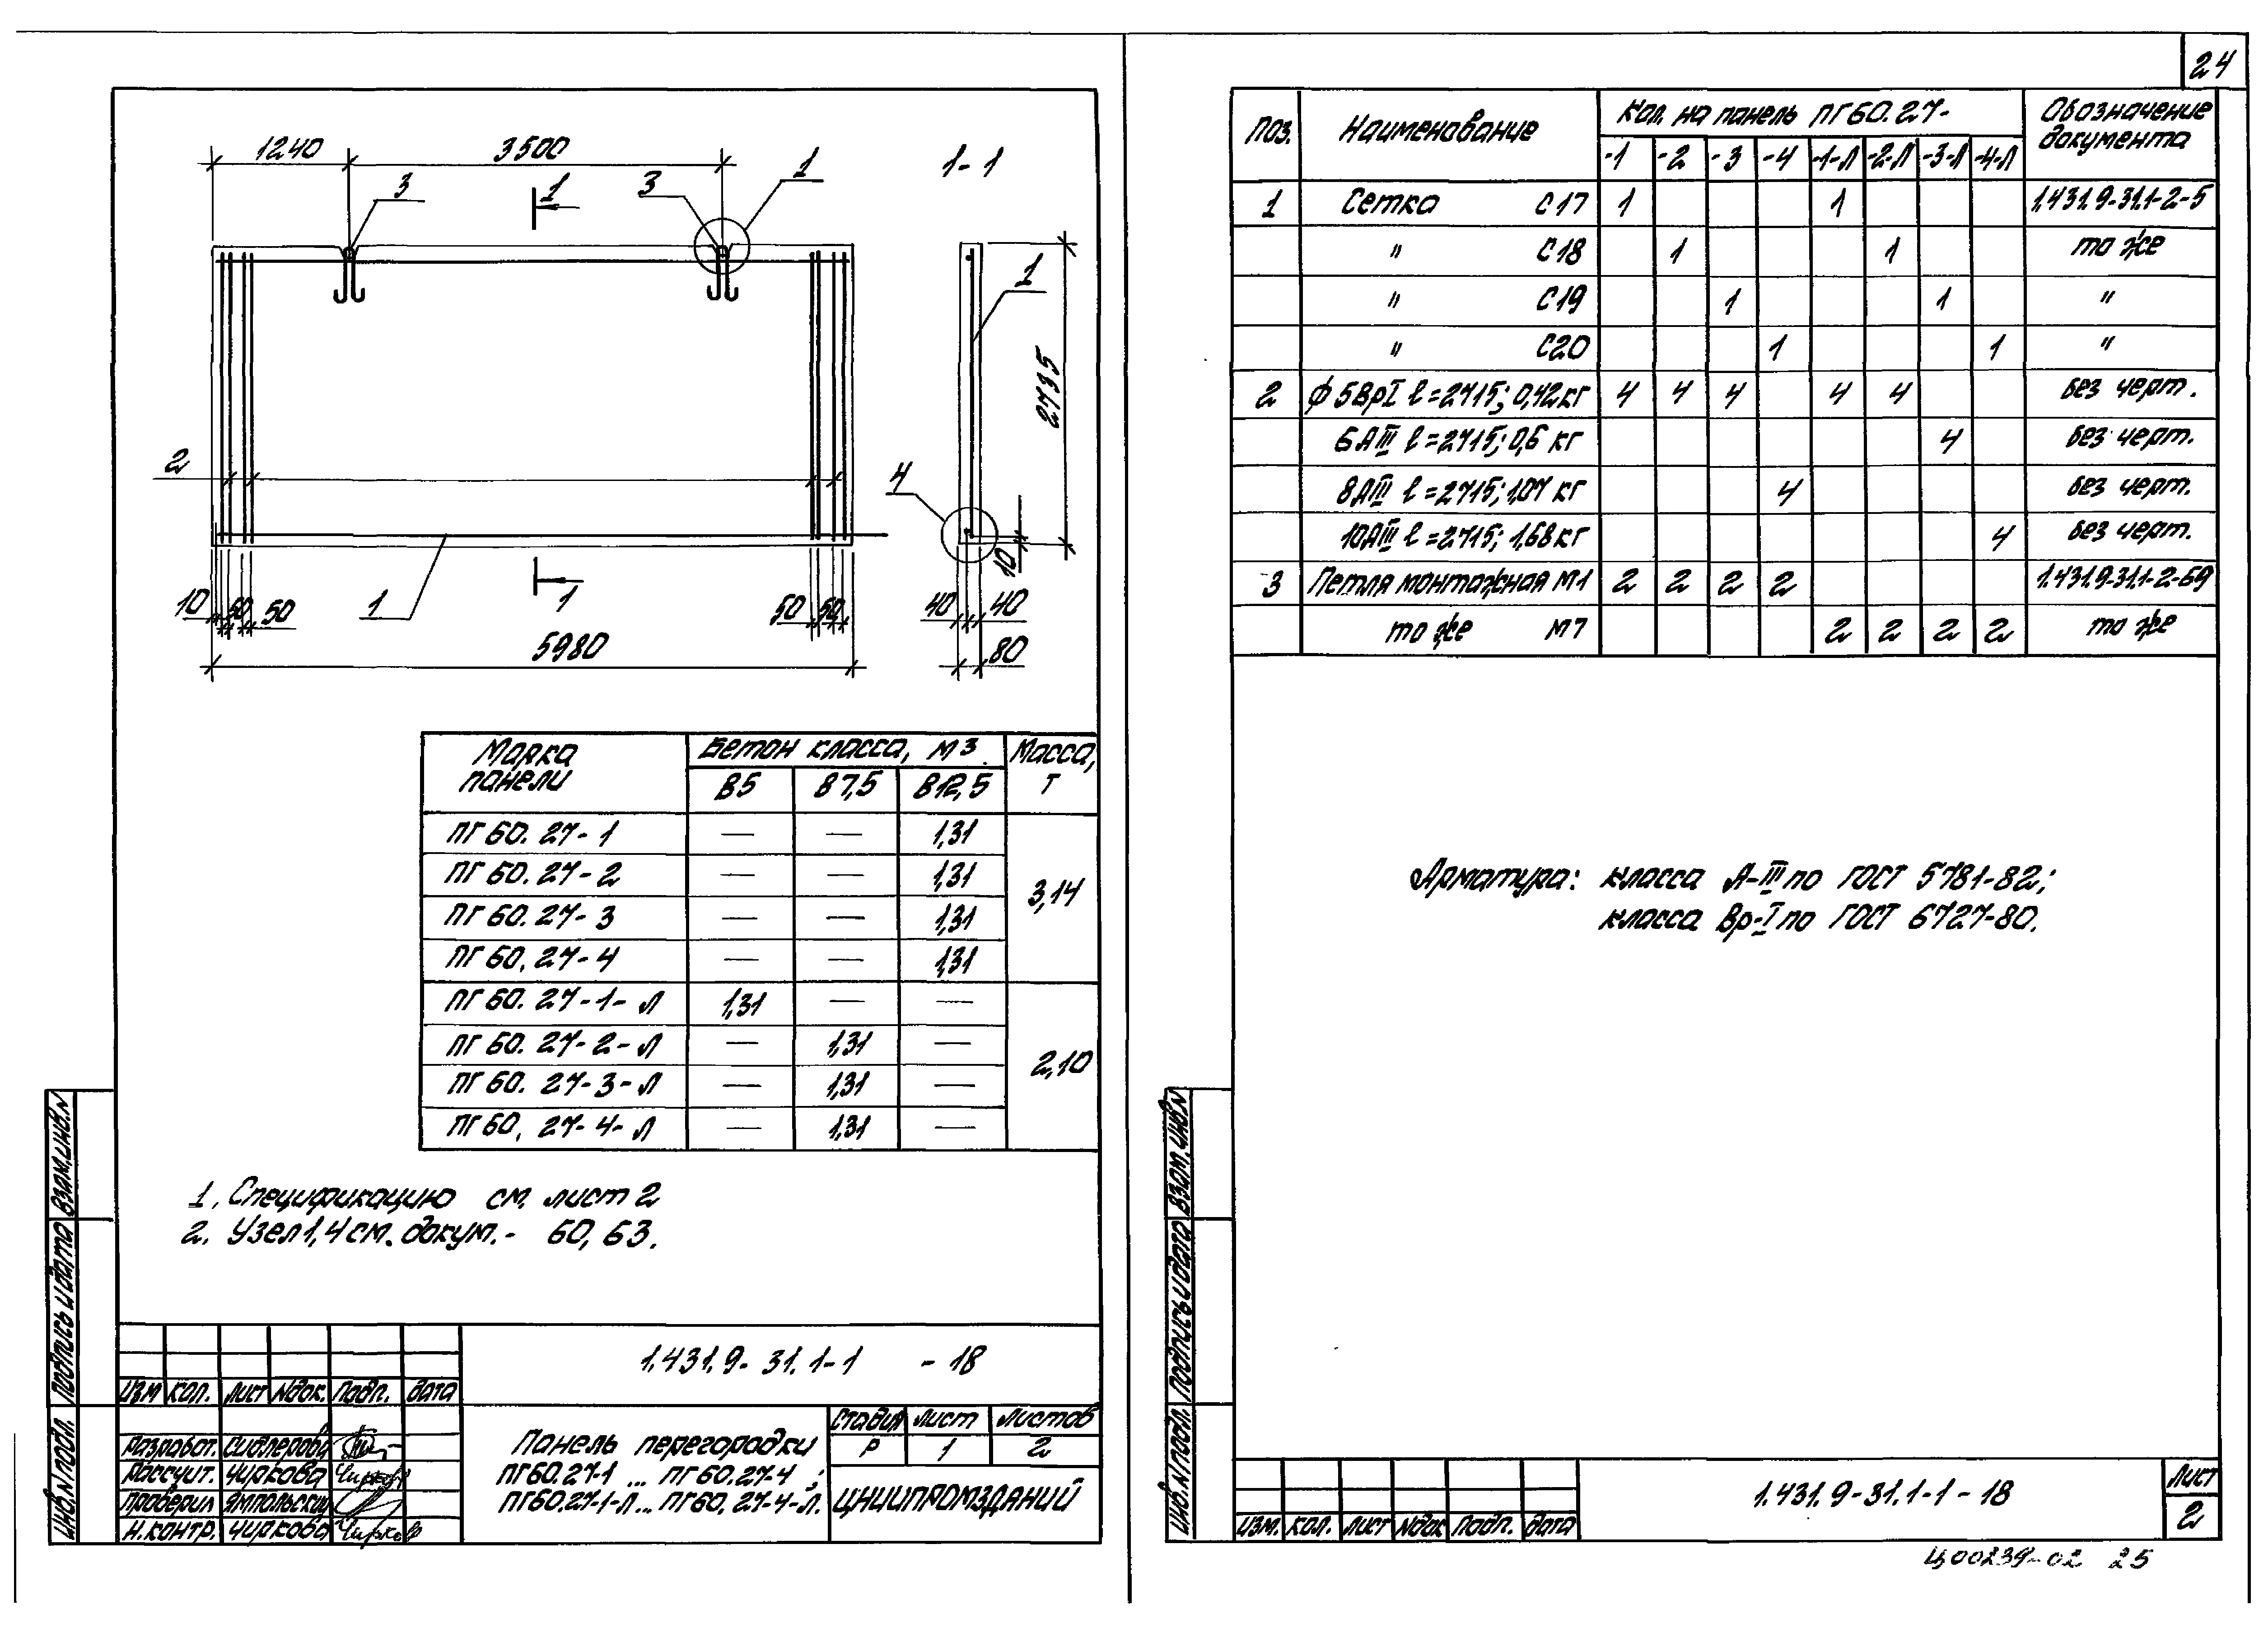 24
1240
3500
1-1
3
1
3
1
1
2
4
2735
10
1
1
10
50
50
50
50
40
40
5980
80
Марка панели | Бетон класса, м3 | Масса, т
В5 | В7,5 | В12,5
ПГ 60. 27-1 | — | — | 1,31 | 3,14
ПГ 60. 27-2 | — | — | 1,31
ПГ 60. 27-3 | — | — | 1,31
ПГ 60. 27-4 | — | — | 1,31
ПГ 60. 27-1-Л | 1,31 | — | — | 2,10
ПГ 60. 27-2-Л | — | 1,31 | —
ПГ 60. 27-3-Л | — | 1,31 | —
ПГ 60. 27-4-Л | — | 1,31 | —
1. Спецификацию см. лист 2
2. Узел 1,4 см. докум. - 60, 63.
1.431.9-31.1-1 -18
Изм Кол. Лист Nдок. Подп. Дата
Разработ. Сидлерова
Рассчит. Чиркова
Проверил Ямпольский
Н.контр. Чиркова
Панель перегородки
ПГ60.27-1 ... ПГ60.27-4 ;
ПГ60.27-1-Л... ПГ60.27-4-Л.
Стадия Лист Листов
Р 1 2
ЦНИИПРОМЗДАНИЙ
Инв.N подл. Подпись и дата Взам.инв.N
Поз. | Наименование | Кол. на панель ПГ60.27- | Обозначение документа
-1 | -2 | -3 | -4 | -1-Л | -2-Л | -3-Л | -4-Л
1 Сетка С17 1 1 1.431.9-31.1-2-5
" С18 1 1 то же
" С19 1 1 "
" С20 1 1 "
2 ф 5ВрI ℓ=2715; 0,42кг 4 4 4 4 4 без черт.
6АIII ℓ=2715; 0,6 кг 4 без черт.
8АIII ℓ=2715; 1,07 кг 4 без черт.
10АIII ℓ=2715; 1,68кг 4 без черт.
3 Петля монтажная М1 2 2 2 2 1.431.9-31.1-2-69
то же М7 2 2 2 2 то же
Арматура: класса А-III по ГОСТ 5781-82;
класса Вр-I по ГОСТ 6727-80.
Инв.N подл. Подпись и дата Взам.инв.N
Изм. Кол. Лист Nдок Подп. Дата
1.431.9-31.1-1-18
Лист
2
Ц00239-02 25